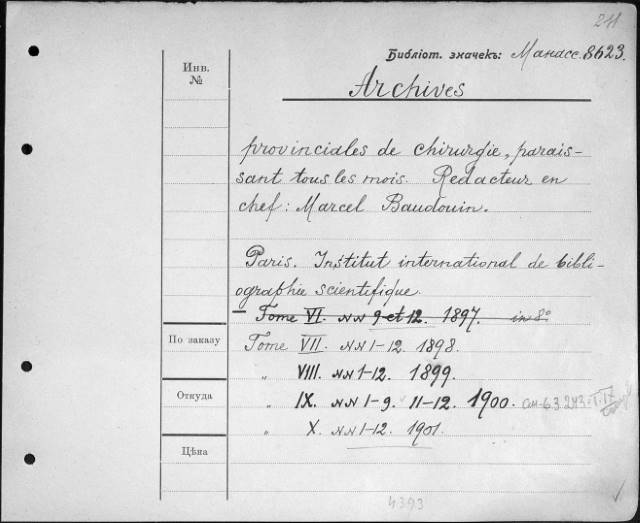 241
Библіот. значекъ: Манасс. 8623.
Инв.
№
Archives
provinciales de chirurgie, parais-
sant tous les mois. Redacteur en
chef: Marcel Baudouin.
Paris. Institut international de bibli-
ographie scientifique.
Tome VI. NN 9 et 12. 1897. in 8°
По заказу
Tome VII. NN 1-12. 1898.
" VIII. NN 1-12. 1899.
Откуда
" IX. NN 1-9. 11-12. 1900. см. 63.243
" X. NN 1-12. 1901.
Цѣна
4393